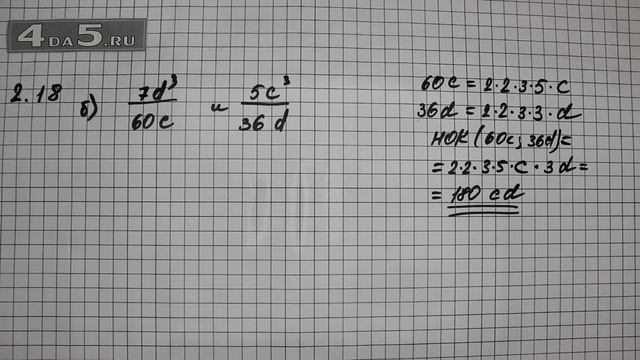 4DA5.RU
2.18 б) 7d³/60c и 5c³/36d
60c = 2·2·3·5·c
36d = 2·2·3·3·d
НОК (60c; 36d) =
= 2·2·3·5·c·3d =
= 180 cd